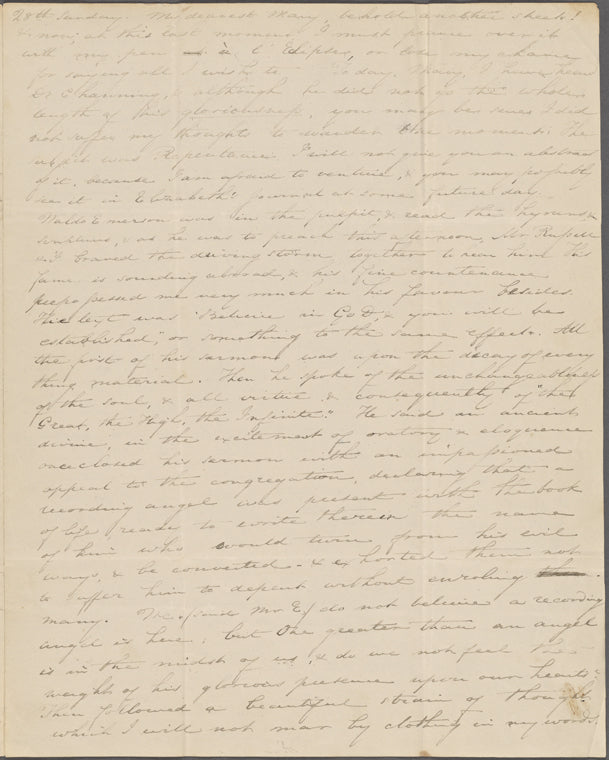 28th Sunday. My dearest Mary, behold another sheet!
& now, at this last moment I must pause over it
with my pen à l'Eclipse, or lose my chance
for saying all I wish to. Today, Mary, I have heard
Dr Channing, & although he did not go the whole
length of his gloriousness, you may be sure I did
not suffer my thoughts to wander one moment. The
subject was Repentance. I will not give you an abstract
of it, because I am afraid to venture, & you may possibly
see it in Elizabeth's journal at some future day.
Waldo Emerson was in the pulpit, & read the hymns &
scriptures, & as he was to preach this afternoon, Mr Russell
& I braved the driving storm, together to hear him. His
fame is sounding abroad, & his fine countenance
prepossessed me very much in his favour besides.
His text was "Believe in God, & you will be
established," or something to the same effect. All
the first of his sermon was upon the decay of every
thing material. Then he spoke of the unchangeableness
of the soul, & all virtue & consequently of "the
Great, the High, the Infinite." He said an ancient
divine, in the excitement of oratory & eloquence
once closed his sermon with an impassioned
appeal to the congregation, declaring that a
recording angel was present with the book
of life, ready to write therein the name
of him who would turn from his evil
ways, & be converted - & exhorted them not
to suffer him to depart without enroling
many. We, (said Mr E.) do not believe a recording
angel is here; but One greater than an angel
is in the midst of us, & do we not feel the
weight of his glorious presence upon our hearts."
Then followed a beautiful strain of thought
which I will not mar by clothing in my words.